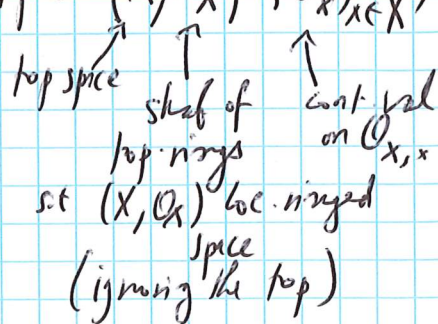 top space
sheaf of
top. rings
cont. val
on O_{X,x}
s.t (X, O_X) loc. ringed
space
(ignoring the top)